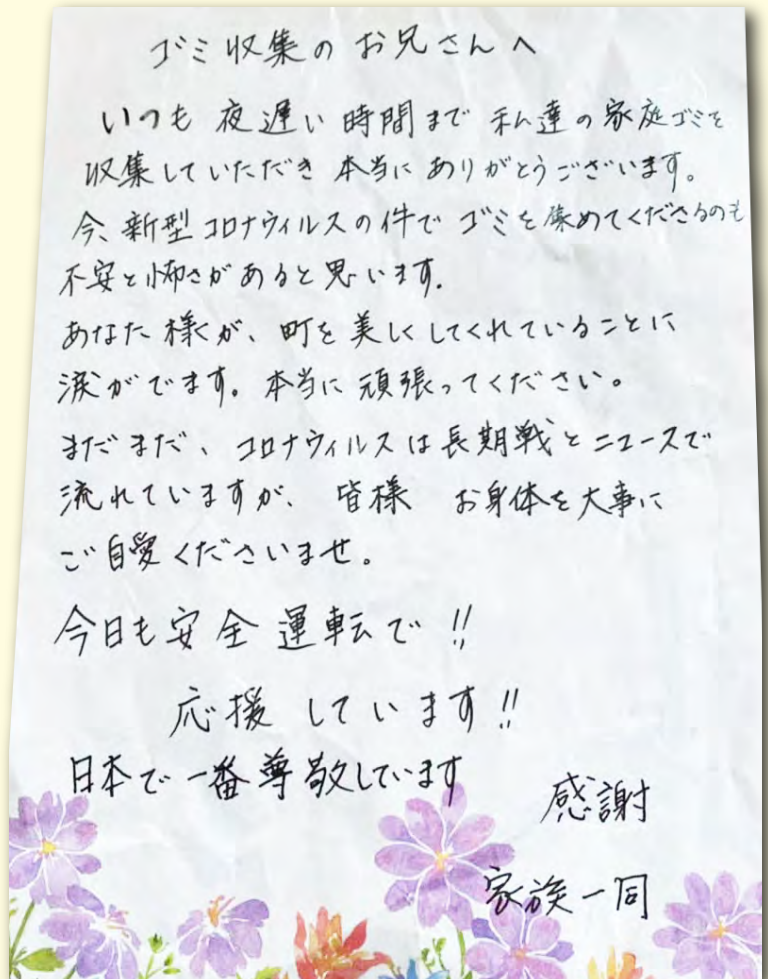 ゴミ収集のお兄さんへ
いつも夜遅い時間まで私達の家庭ゴミを
収集していただき本当にありがとうございます。
今、新型コロナウィルスの件でゴミを集めてくださるのも
不安と怖さがあると思います。
あなた様が、町を美しくしてくれていることに
涙がでます。本当に頑張ってください。
まだまだ、コロナウィルスは長期戦とニュースで
流れていますが、皆様 お身体を大事に
ご自愛くださいませ。
今日も安全運転で!!
応援しています!!
日本で一番尊敬しています
感謝
家族一同